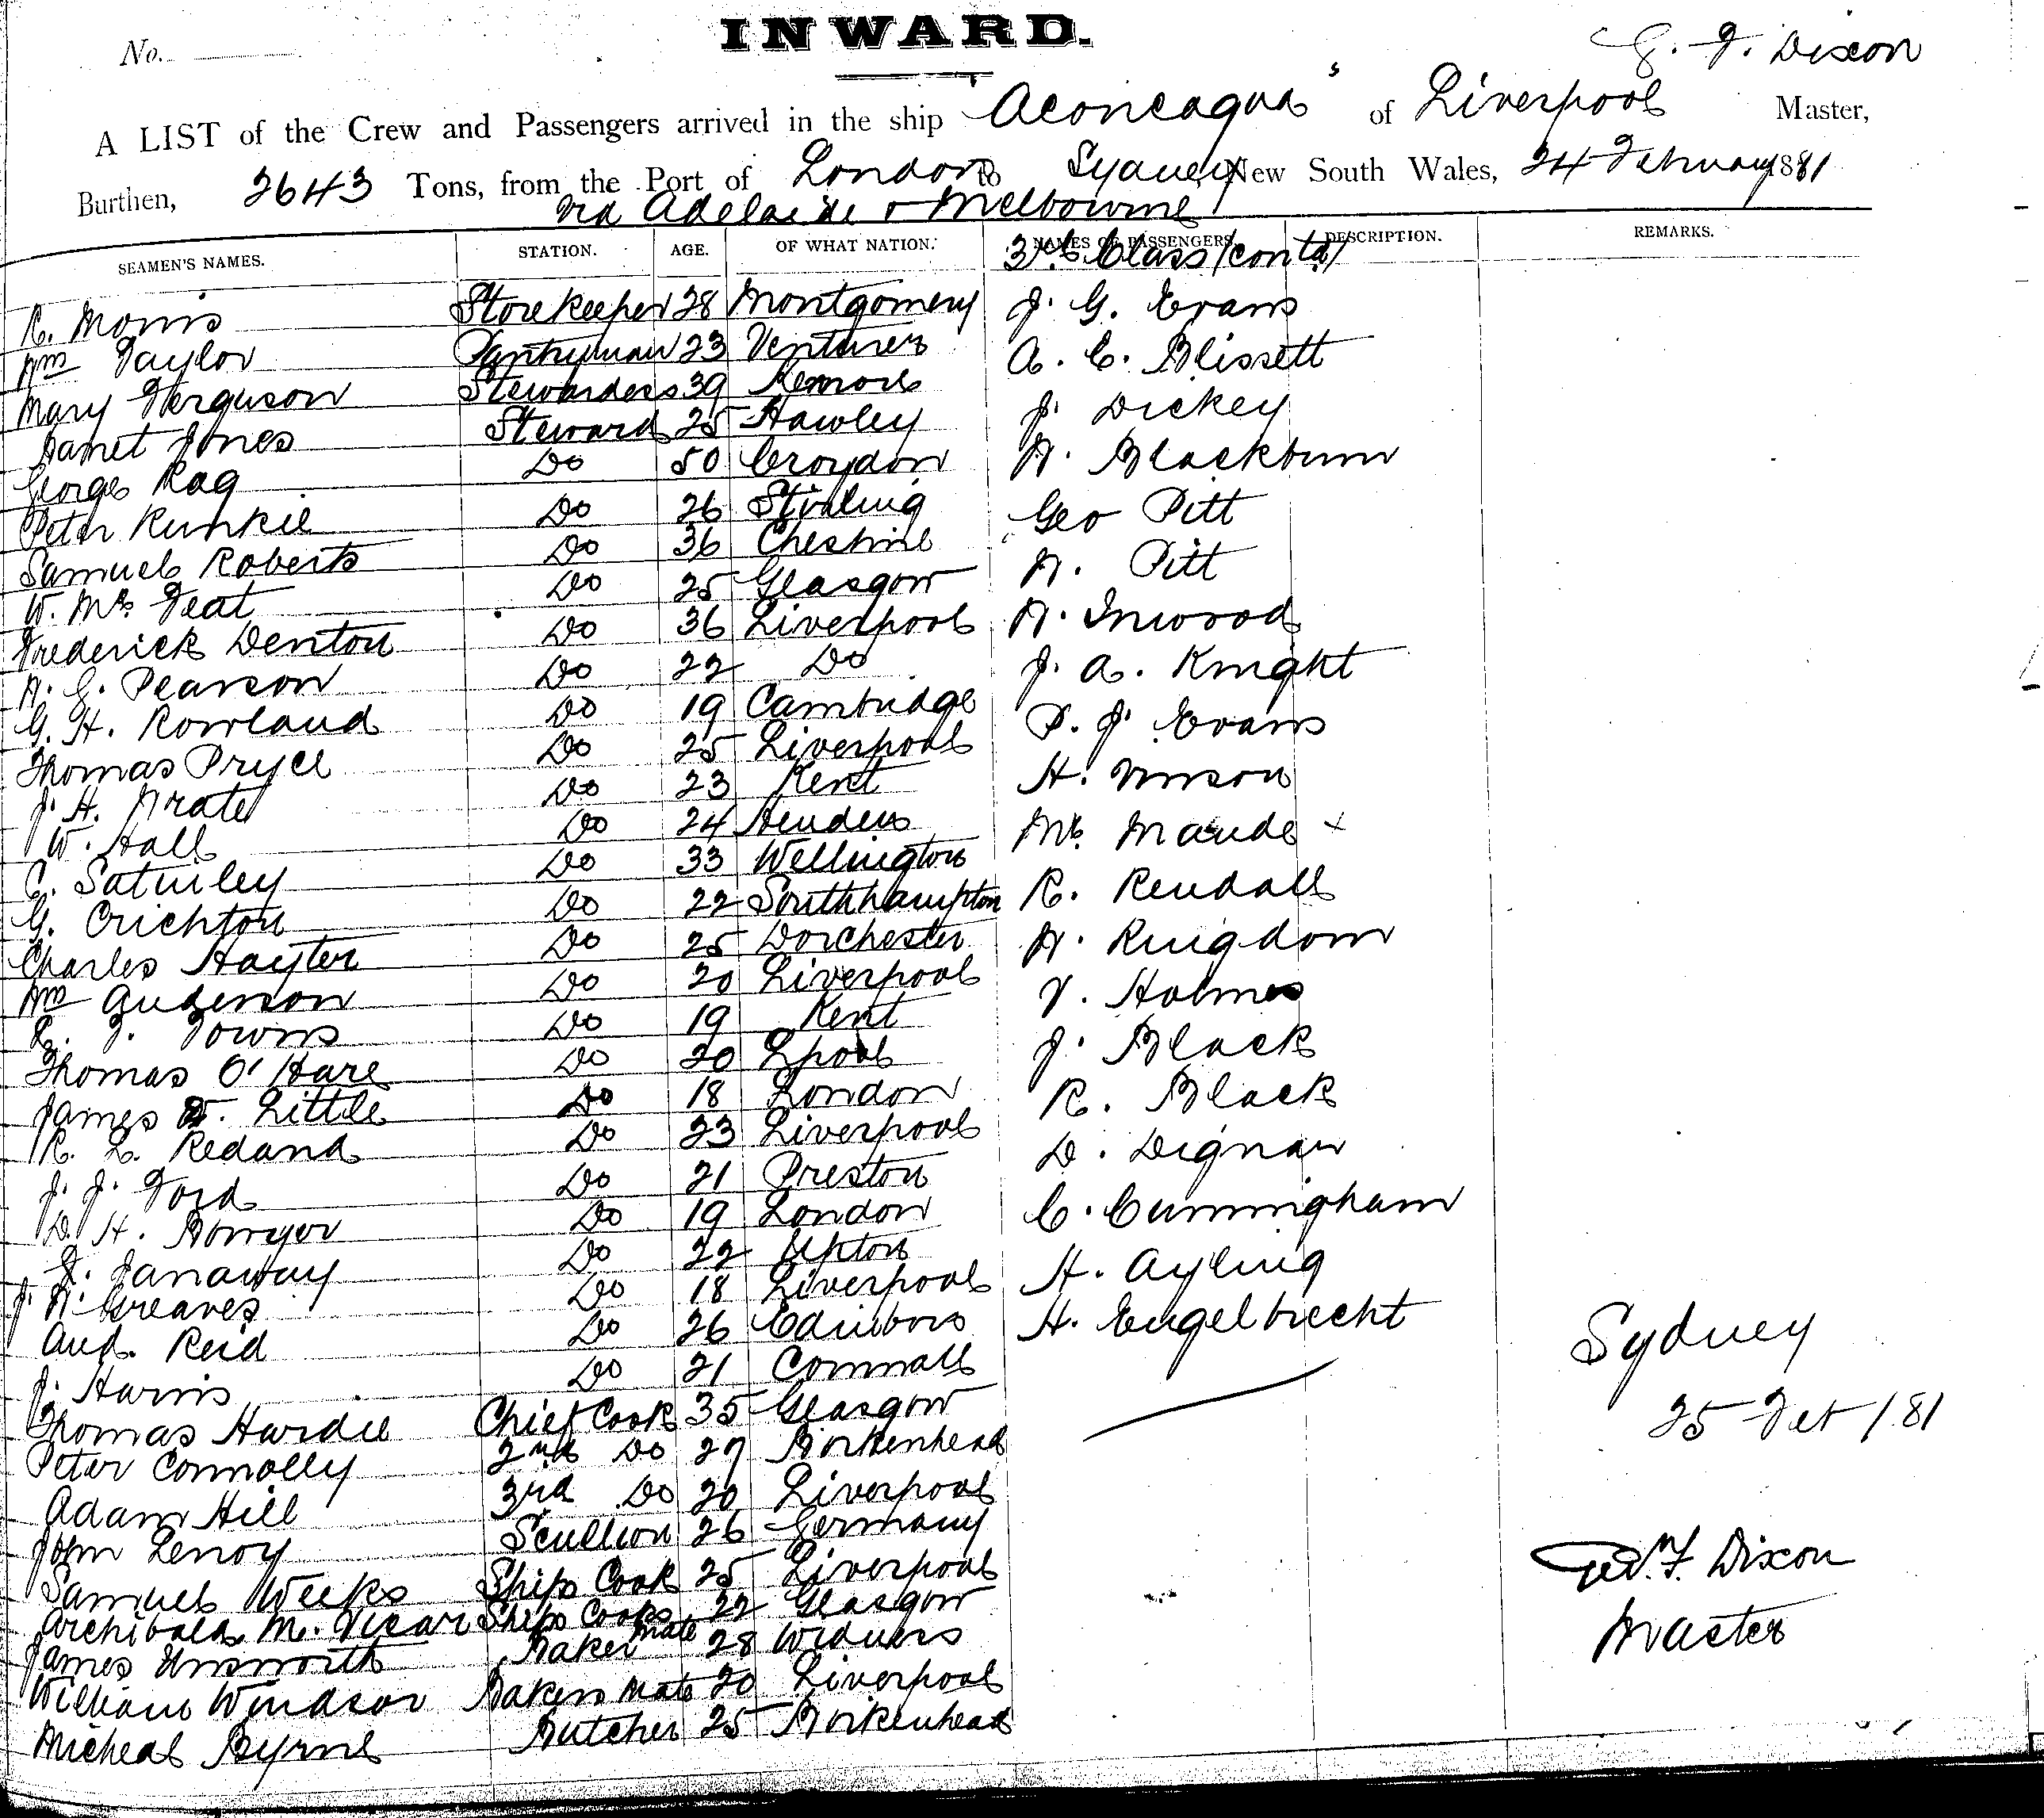 INWARD.
No.
G. F. Dixon
A LIST of the Crew and Passengers arrived in the ship "Aconcagua" of Liverpool Master,
Burthen, 2643 Tons, from the Port of London to Sydney New South Wales, 24 February 1881
via Adelaide & Melbourne
SEAMEN'S NAMES. STATION. AGE. OF WHAT NATION. NAMES OF PASSENGERS. DESCRIPTION. REMARKS.
3rd Class (contd)
R. Morris Storekeeper 28 Montgomery J. G. Evans
Wm Taylor Pantryman 23 Ventnor A. C. Blissett
Mary Ferguson Stewardess 39 J. Dickey
Janet Jones Steward 25 Hawley W. Blackburn
George Rag Do 50 Croydon Geo Pitt
Peter Runkie Do 26 Stirling W. Pitt
Samuel Roberts Do 36 Cheshire W. Inwood
W. Mc Feat Do 25 Glasgow J. A. Knight
Frederick Denton Do 36 Liverpool P. J. Evans
W. G. Pearson Do 22 Do H. Vinson
G. H. Rowland Do 19 Cambridge Mr. Maude x
Thomas Pryce Do 25 Liverpool R. Rendall
J. H. Do 23 Kent W. Kingdom
W. Hall Do 24 V. Holmes
C. Saturley Do 33 Wellington J. Black
G. Crichton Do 22 Southhampton R. Black
Charles Hayter Do 25 Dorchester D. Dignan
Wm Anderson Do 20 Liverpool C. Cunningham
Towns Do 19 Kent H. Ayling
Thomas O'Hare Do 20 Lpool H. Engelbrecht
James Little Do 18 London
R. L. Redand Do 23 Liverpool
J. J. Ford Do 21 Preston
D. H. Bowyer Do 19 London
Janaway Do 22 Upton
J. W. Greaves Do 18 Liverpool
And. Reid Do 26 Edinboro
J. Harris Do 21 Cornwall
Thomas Hardie Chief Cook 35 Glasgow
Peter Connolly 2nd Do 27 Birkenhead
Adam Hill 3rd Do 20 Liverpool
John Leroy Scullion 26 Germany
Samuel Weeks Ships Cook 25 Liverpool
Archibald Mc Vicar Ships Cooks Mate 22 Glasgow
James Unsworth Baker 28 Widness
William Windsor Bakers Mate 20 Liverpool
Micheal Byrne Butcher 25 Birkenhead
Sydney
25 Feb /81
Geo. F. Dixon
Master